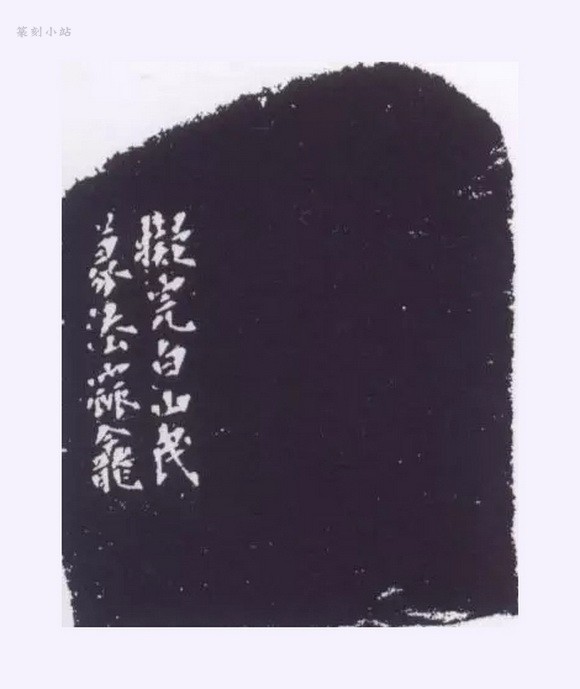 篆刻小站
擬完白山民
篆法龕